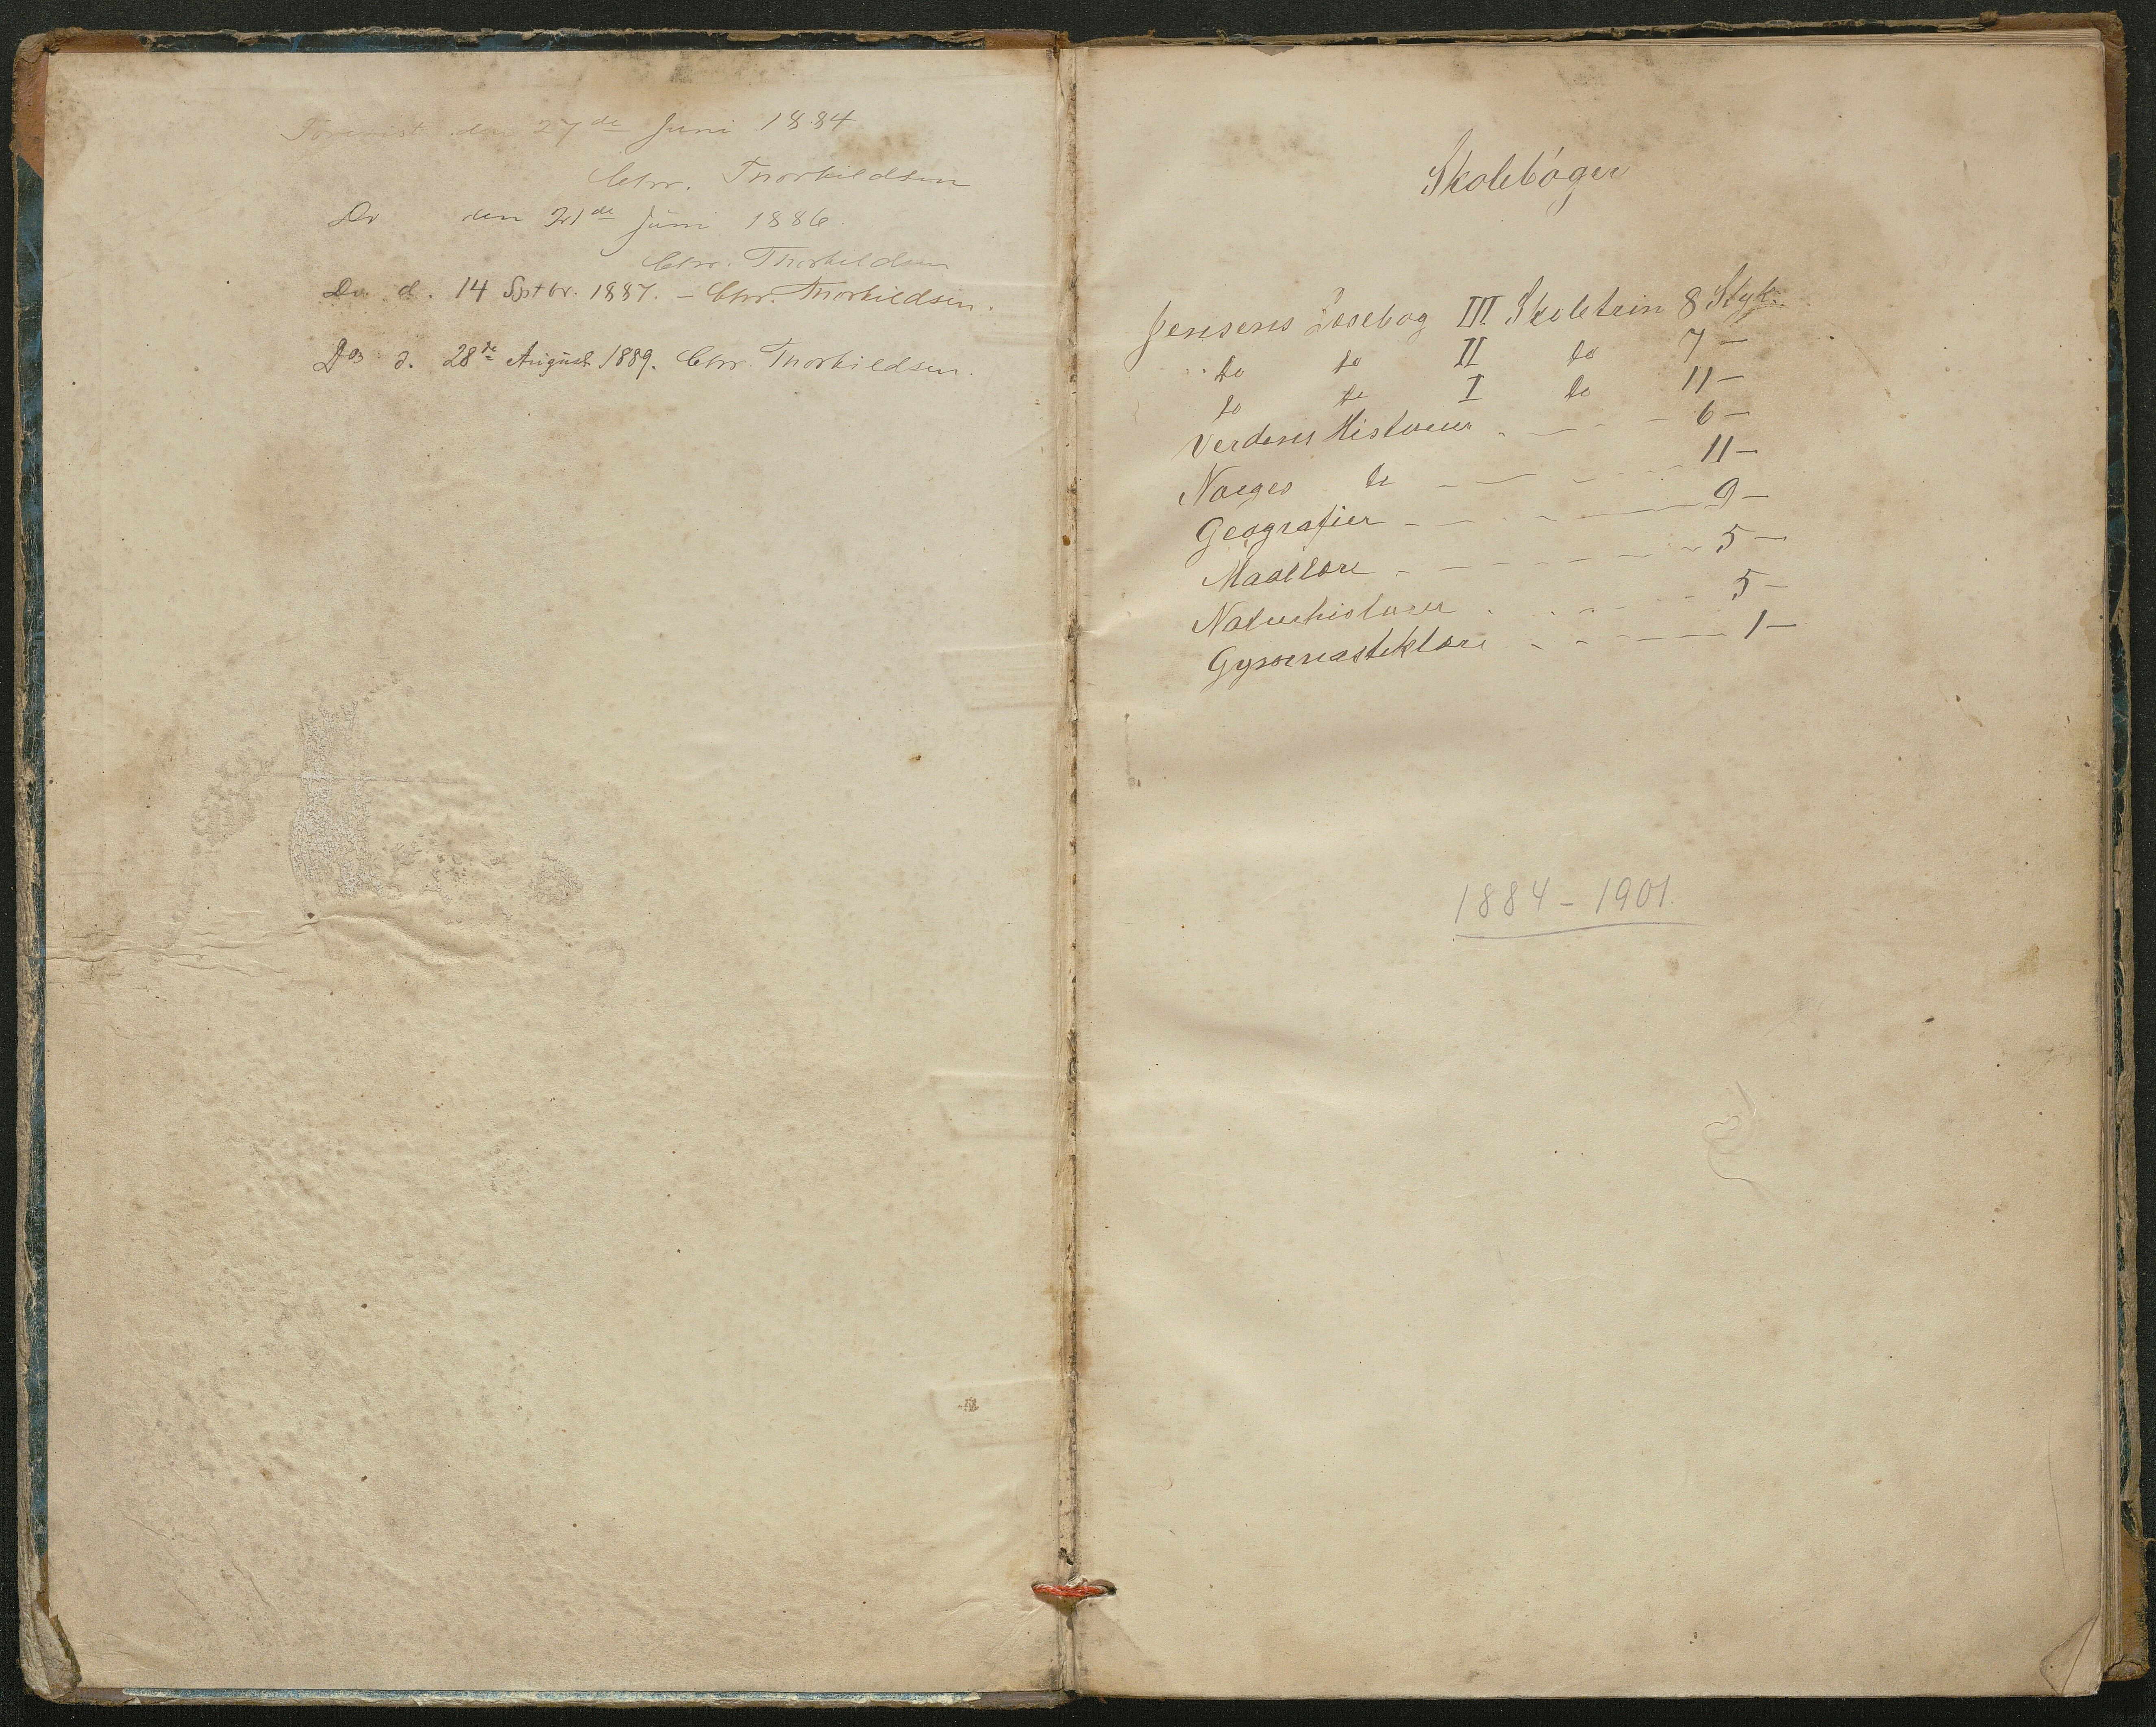 Forevist den 27de Juni 1884
Chr. Thorkildsen
Do den 21de Juni 1886.
Chr. Thorkildsen
Do d. 14 Septbr. 1887. – Chr. Thorkildsen.
Do d. 28de August 1889. Chr. Thorkildsen.
Skolebøger
Jensens Læsebog III Skoletrin 8 Styk.
do do II do 7 –
do do I do 11 –
Verdens Historier - - - - 6 –
Norges do - - - - 11 –
Geografier - - - - 9 –
Maallære - - - - 5 –
Naturhistorier - - - - 5 –
Gymnastiklære - - - - 1 –
1884 – 1901.